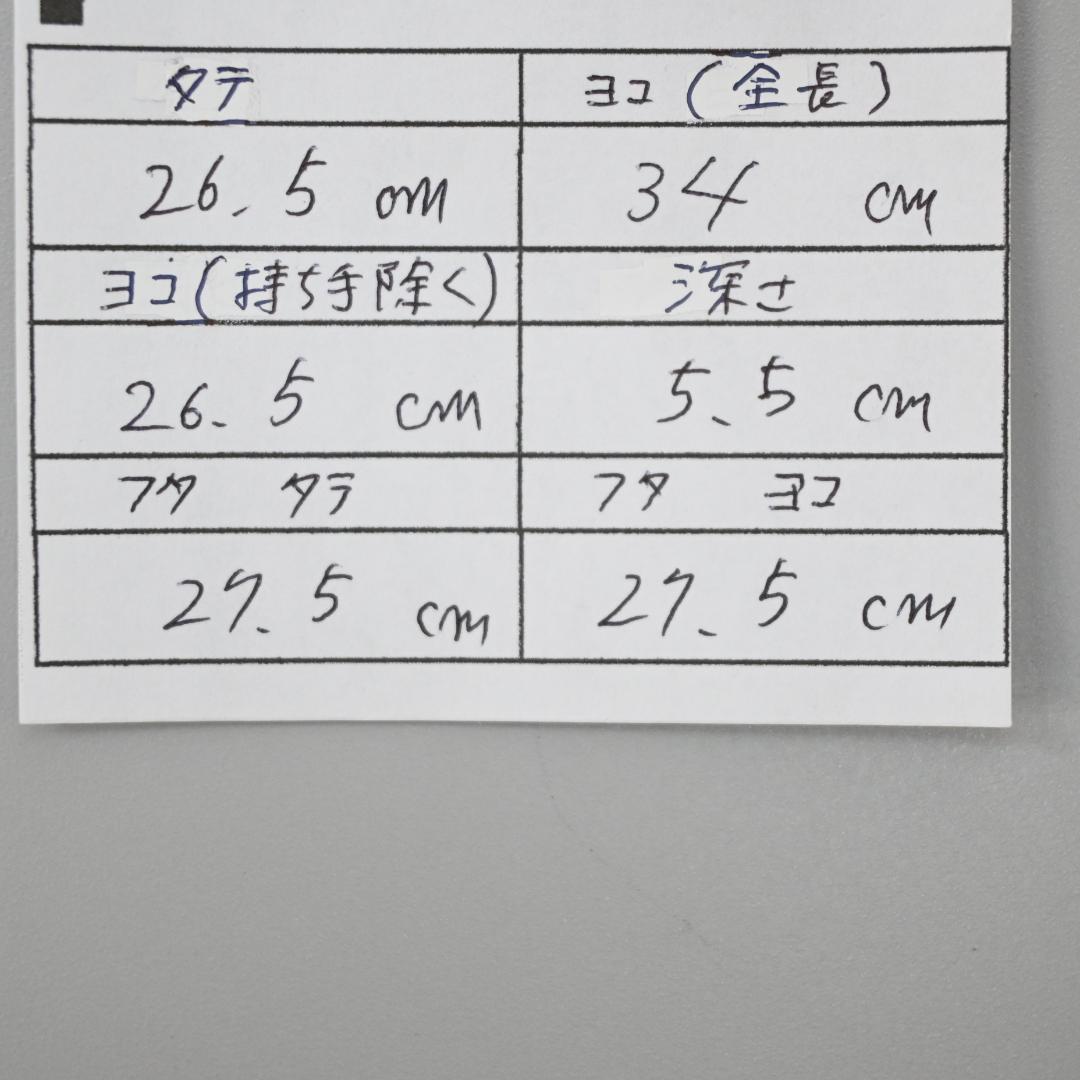 タテ ヨコ(全長)
26.5 cm 34 cm
ヨコ(持ち手除く) 深さ
26.5 cm 5.5 cm
フタ タテ フタ ヨコ
27.5 cm 27.5 cm